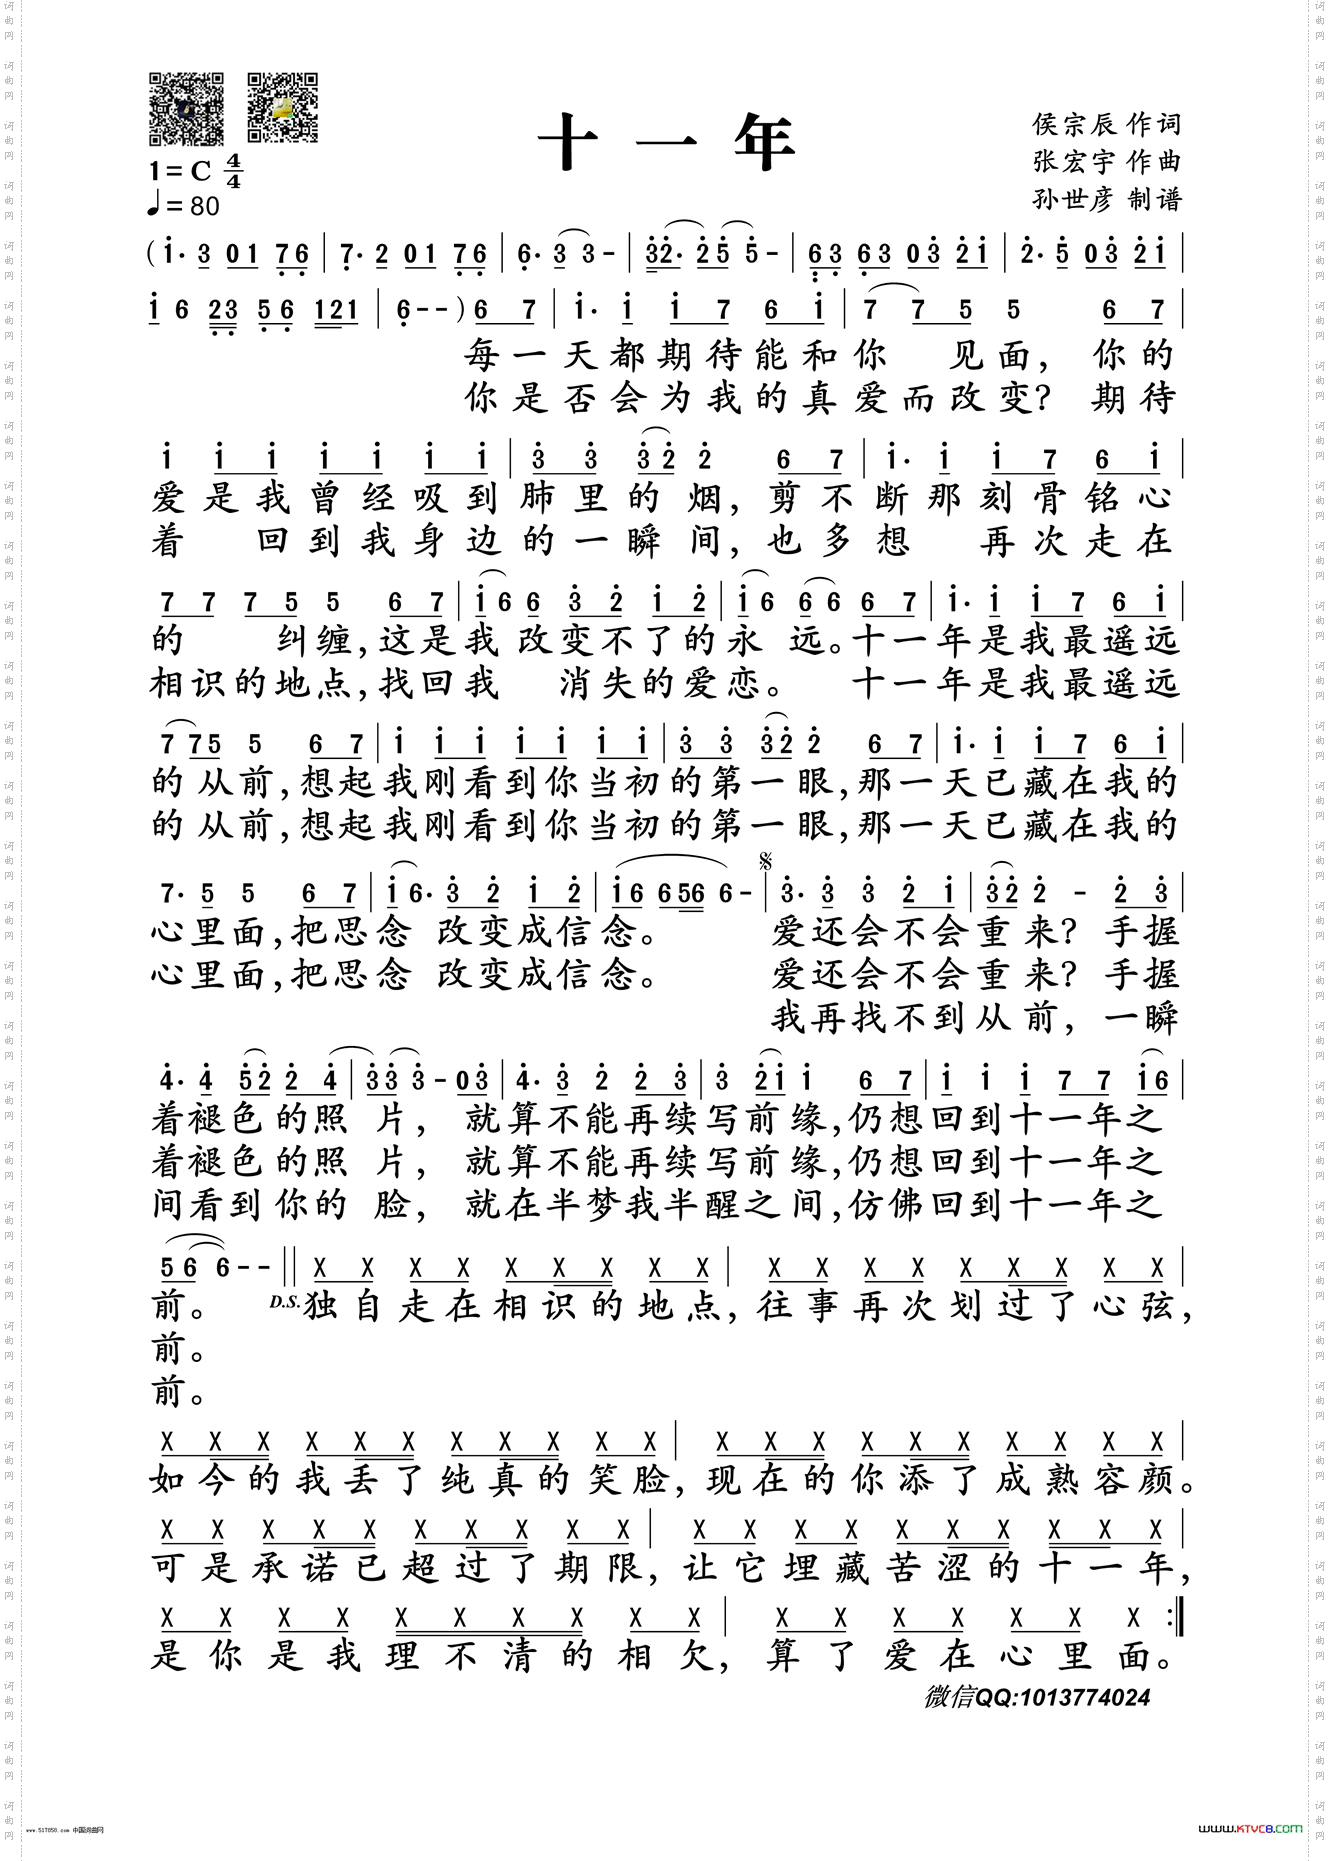 十一年
侯宗辰 作词
张宏宇 作曲
孙世彦 制谱
1=C 4/4
♩=80
(i· 3 01 76 | 7· 2 01 76 | 6· 3 3- | 32· 25 5- | 63 63 03 21 | 2· 5 03 21 |
i 6 23 56 121 | 6--) 6 7 | i· i i 7 6 i | 7 7 5 5 6 7 |
每一天都期待能和你 见面,你的
你是否会为我的真爱而改变?期待
i i i i i i i | 3 3 3 2 2 6 7 | i· i i 7 6 i |
爱是我曾经吸到肺里的烟,剪不断那刻骨铭心
着 回到我身边的一瞬间,也多想 再次走在
7 7 7 5 5 6 7 | i 6 6 3 2 i 2 | i 6 6 6 6 7 | i· i i 7 6 i |
的 纠缠,这是我 改变不了的永 远。十一年是我最遥远
相识的地点,找回我 消失的爱恋。 十一年是我最遥远
7 75 5 6 7 | i i i i i i i | 3 3 32 2 6 7 | i· i i 7 6 i |
的从前,想起我刚看到你当初的第一眼,那一天已藏在我的
的从前,想起我刚看到你当初的第一眼,那一天已藏在我的
7· 5 5 6 7 | i 6· 3 2 i 2 | i6 656 6- | 3· 3 3 2 i | 32 2 - 2 3 |
心里面,把思念 改变成信念。 爱还会不会重来?手握
心里面,把思念 改变成信念。 爱还会不会重来?手握
我再找不到从前,一瞬
4· 4 52 2 4 | 33 3-03 | 4· 3 2 2 3 | 3 2i i 6 7 | i i i 7 7 i6 |
着褪色的照 片, 就算不能再续写前缘,仍想回到十一年之
着褪色的照 片, 就算不能再续写前缘,仍想回到十一年之
间看到你的 脸, 就在半梦我半醒之间,仿佛回到十一年之
56 6-- || X X X X X X X X X | X X X X X X X X X |
前。 D.S.独自走在相识的地点,往事再次划过了心弦,
前。
前。
X X X X X X X X X X X | X X X X X X X X X X |
如今的我丢了纯真的笑脸,现在的你添了成熟容颜。
X X X X X X X X X X | X X X X X X X X X X |
可是承诺已超过了期限,让它埋藏苦涩的十一年,
X X X X X X X X X X | X X X X X X X :||
是你是我理不清的相欠,算了爱在心里面。
微信QQ:1013774024
www.517858.com 中国词曲网
www.KTVC8.com